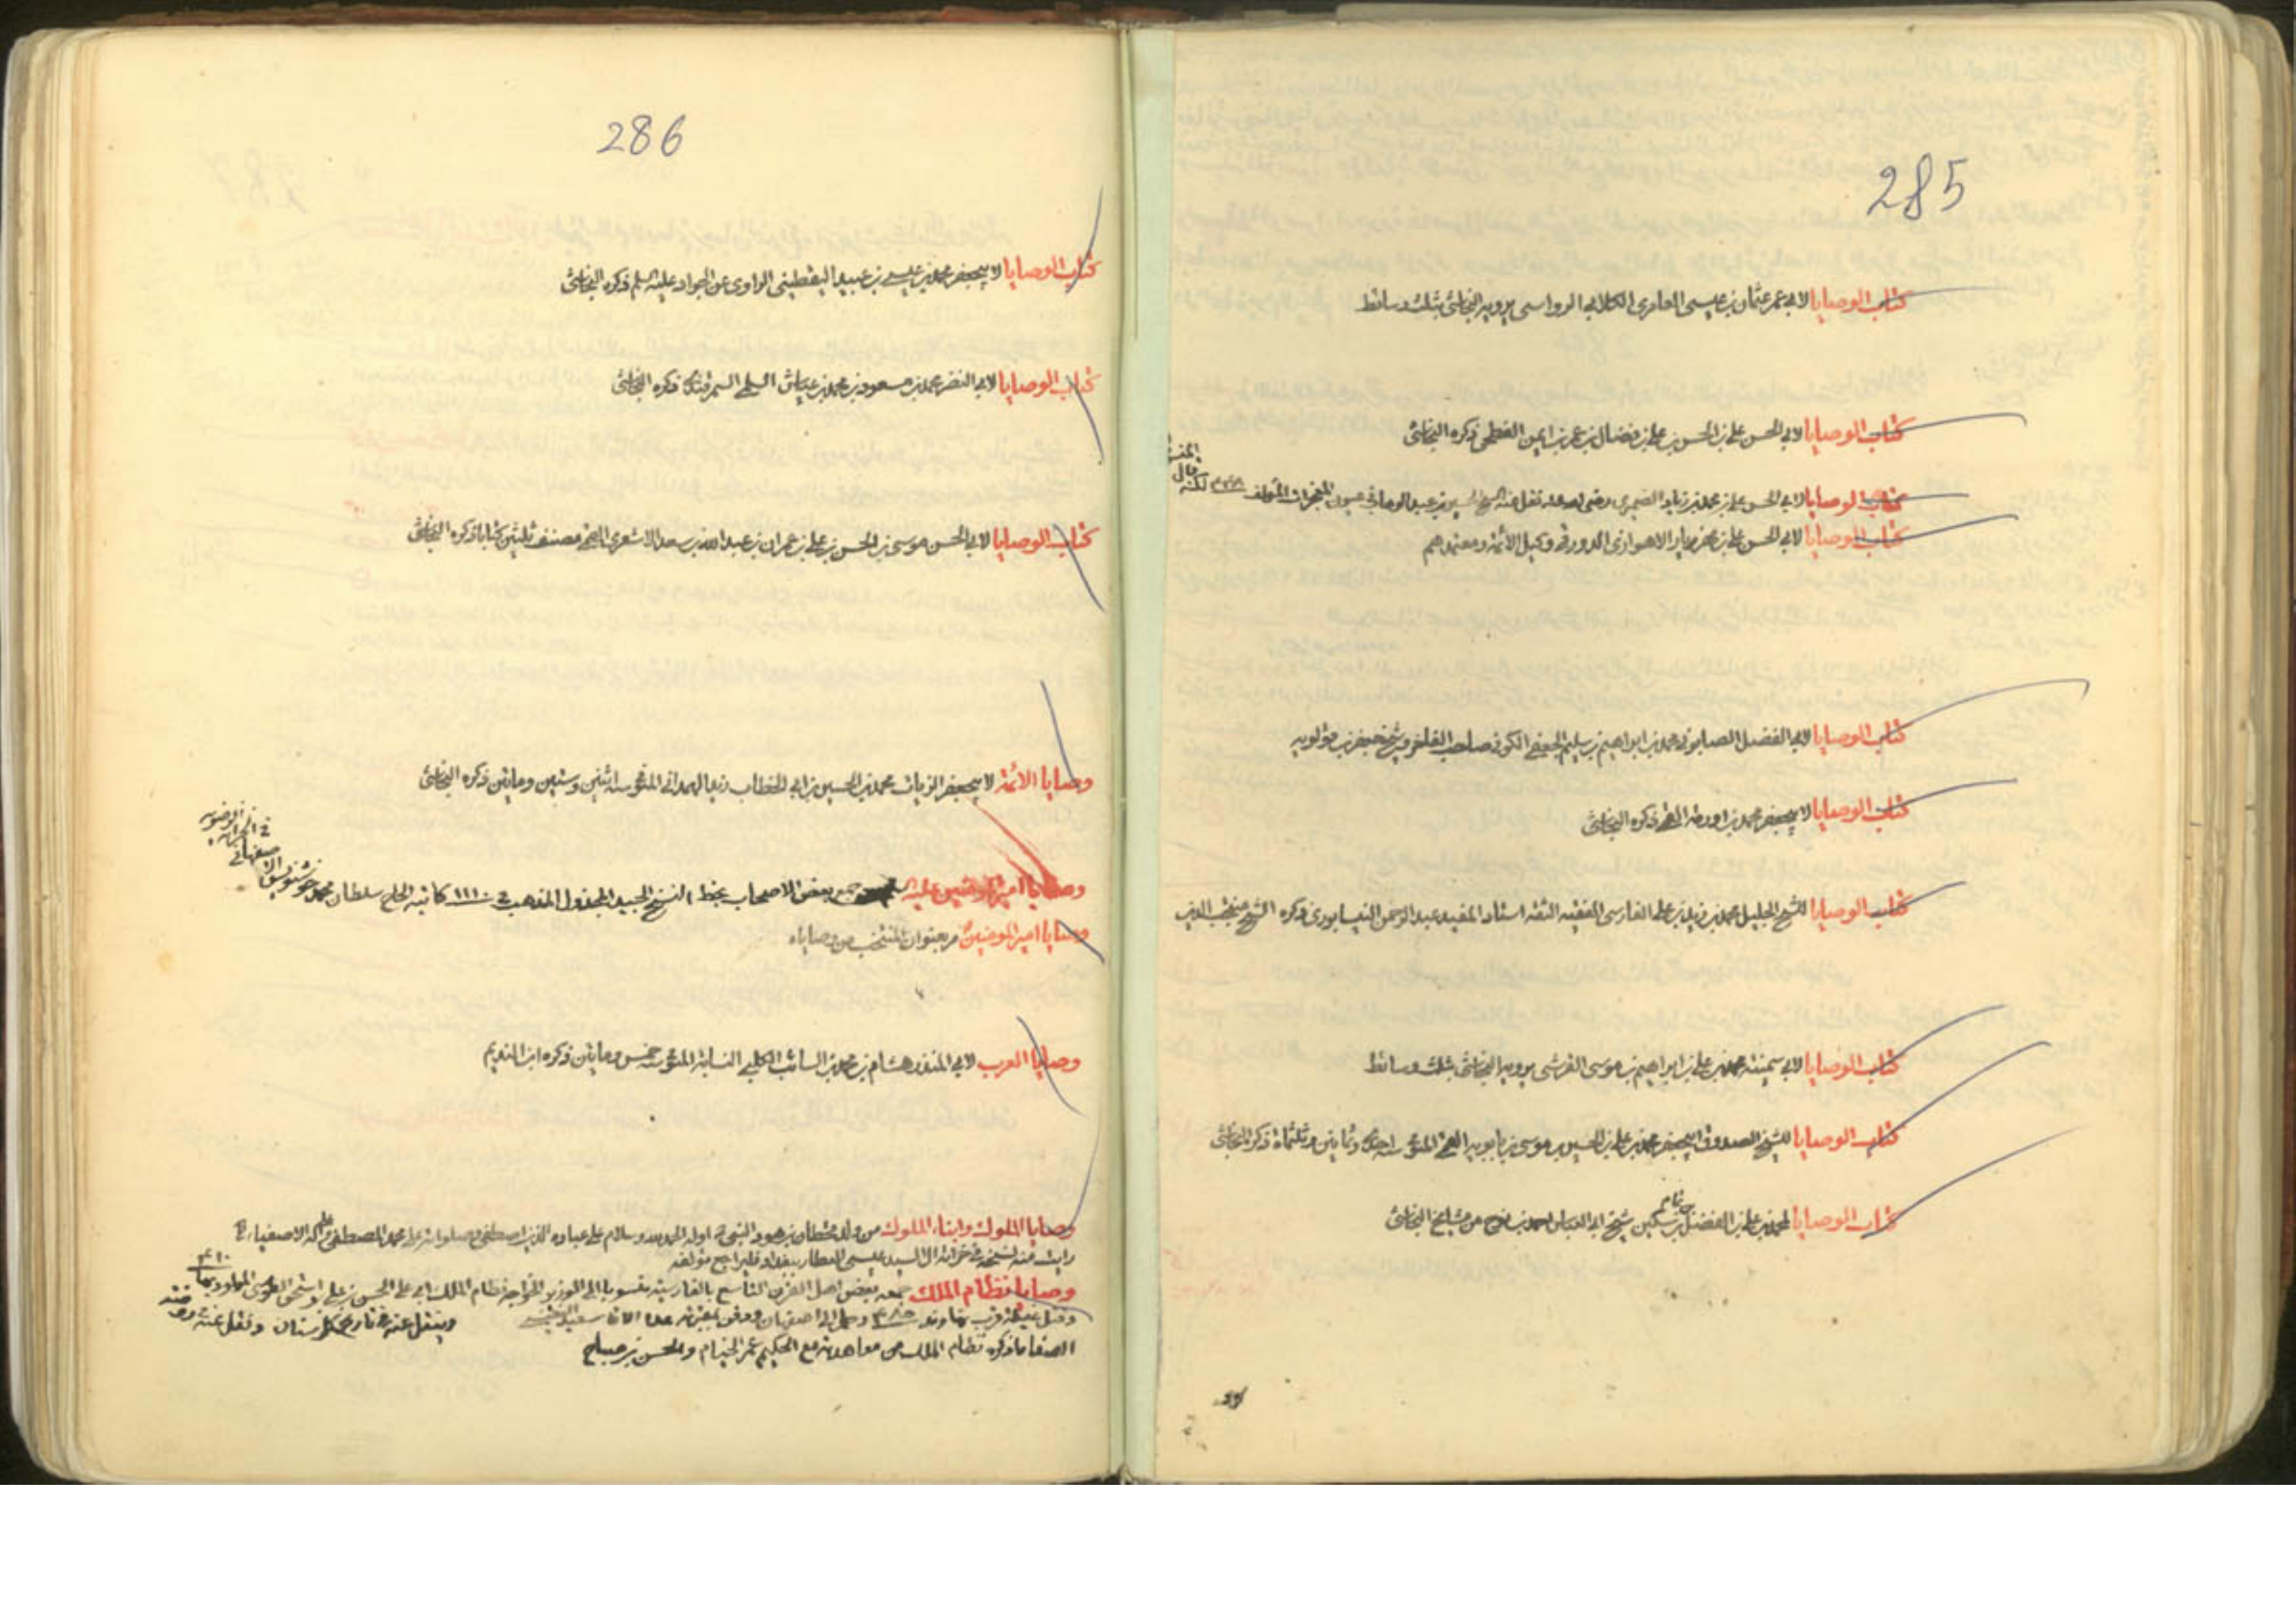 285
كتاب الوصايا لابي عمر عثمان بن عيسى العامري الكلابي الرواسي يرويه النجاشي بثلث وسائط
كتاب الوصايا لابي الحسن علي بن الحسن بن علي بن فضال بن عمر بن ايمن الفطحي ذكره النجاشي
كتاب الوصايا لابي الحسن علي بن محمد بن زياد الصيمري رضي الله عنه نقل عنه الشيخ حسين بن عبد الوهاب في عيون المعجزات المؤلف ٤٤٨ لكنه قال
كتاب الوصايا لابي الحسن علي بن مهزيار الاهوازي الدورقي وكيل الائمة ومعتمدهم
كتاب الوصايا لابي الفضل الصابوني محمد بن ابراهيم بن سليم الجعفي الكوفي صاحب الفاخر وشيخ جعفر بن قولويه
كتاب الوصايا لابيجعفر محمد بن اورمة القمي ذكره النجاشي
كتاب الوصايا للشيخ الجليل محمد بن زيد بن علي الفارسي الفقيه الثقة استاد المفيد عبد الرحمن النيسابوري ذكره الشيخ منتجب الدين
كتاب الوصايا لابي سمينة محمد بن علي بن ابراهيم بن موسى القرشي يرويه النجاشي بثلث وسائط
كتاب الوصايا للشيخ الصدوق ابيجعفر محمد بن علي بن الحسين بن موسى بن بابويه القمي المتوفى سنة احدى وثمانين وثلثمائة ذكره النجاشي
كتاب الوصايا لمحمد بن علي بن الفضل بن تمام بن سكين شيخ ابي العباس احمد بن نوح من مشايخ النجاشي
286
كتاب الوصايا لابيجعفر محمد بن عيسى بن عبيد اليقطيني الراوي عن الجواد عليه السلم ذكره النجاشي
كتاب الوصايا لابي النضر محمد بن مسعود بن محمد بن عياش السلمي السمرقندي ذكره النجاشي
كتاب الوصايا لابي الحسن موسى بن الحسن بن علي بن عمران بن عبد الله بن سعد الاشعري القمي مصنف ثلثين كتابا ذكره النجاشي
وصايا الائمة لابيجعفر الزيات محمد بن الحسين بن ابي الخطاب زيد الهمداني المتوفى سنة اثنتين وستين ومايتين ذكره النجاشي
وصايا امير المؤمنين عليه السلم جمع بعض الاصحاب بخط النسخ الجيد المجدول المذهب في ١١١٠ كاتبه الحاج سلطان محمد خوشنويس الاصفهاني في الخزانة الرضوية
وصايا امير المؤمنين مر بعنوان المنتخب من وصاياه
وصايا العرب لابي المنذر هشام بن محمد بن السائب الكلبي النسابة المتوفى سنة خمس ومايتين ذكره ابن النديم
وصايا الملوك وابناء الملوك من ولد قحطان بن هود النبي اوله الحمد لله وسلام على عباده الذين اصطفى وصلواته على محمد المصطفى وعلى آله الاصفياء
رايت منه نسخة في خزانة السيد عيسى العطار ببغداد فليراجع مؤلفه
وصايا نظام الملك جمعه بعض اهل القرن التاسع بالفارسية منسوبا الى الوزير الخواجه نظام الملك ابي علي الحسن بن علي بن اسحق الطوسي المولود بها ٤١٠
وقتل غيلة قرب نهاوند ٤٨٥ وحمل الى اصفهان ودفن وينقل عنه في تاريخ نگارستان ونقل عنه في روضة
الصفا ما ذكره نظام الملك من معاهدته مع الحكيم عمر الخيام والحسن بن صباح